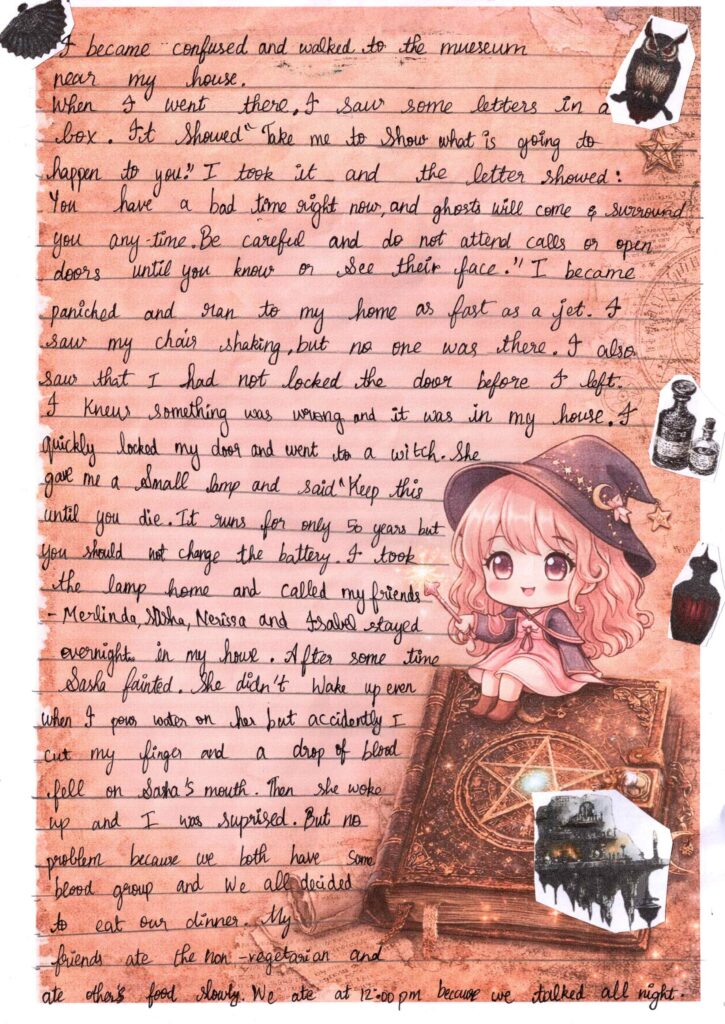 I became confused and walked to the mueseum
near my house.
When I went there, I saw some letters in a
box. It showed "Take me to show what is going to
happen to you." I took it and the letter showed:
You have a bad time right now, and ghosts will come & surround
you any-time. Be careful and do not attend calls or open
doors until you know or see their face." I became
paniched and ran to my home as fast as a jet. I
saw my chair shaking, but no one was there. I also
saw that I had not locked the door before I left.
I knew something was wrong and it was in my house. I
quickly locked my door and went to a witch. She
gave me a small lamp and said "Keep this
until you die. It runs for only 50 years but
you should not change the battery. I took
the lamp home and called my friends
- Merlinda, Nerissa and Isabel stayed
overnight in my house. After some time
Sasha fainted. She didn't wake up even
when I pour water on her but accidently I
cut my finger and a drop of blood
fell on Sasha's mouth. Then she woke
up and I was suprised. But no
problem because we both have same
blood group and we all decided
to eat our dinner. My
friends ate the non-vegetarian and
ate other's food slowly. We ate at 12:00 pm because we talked all night.